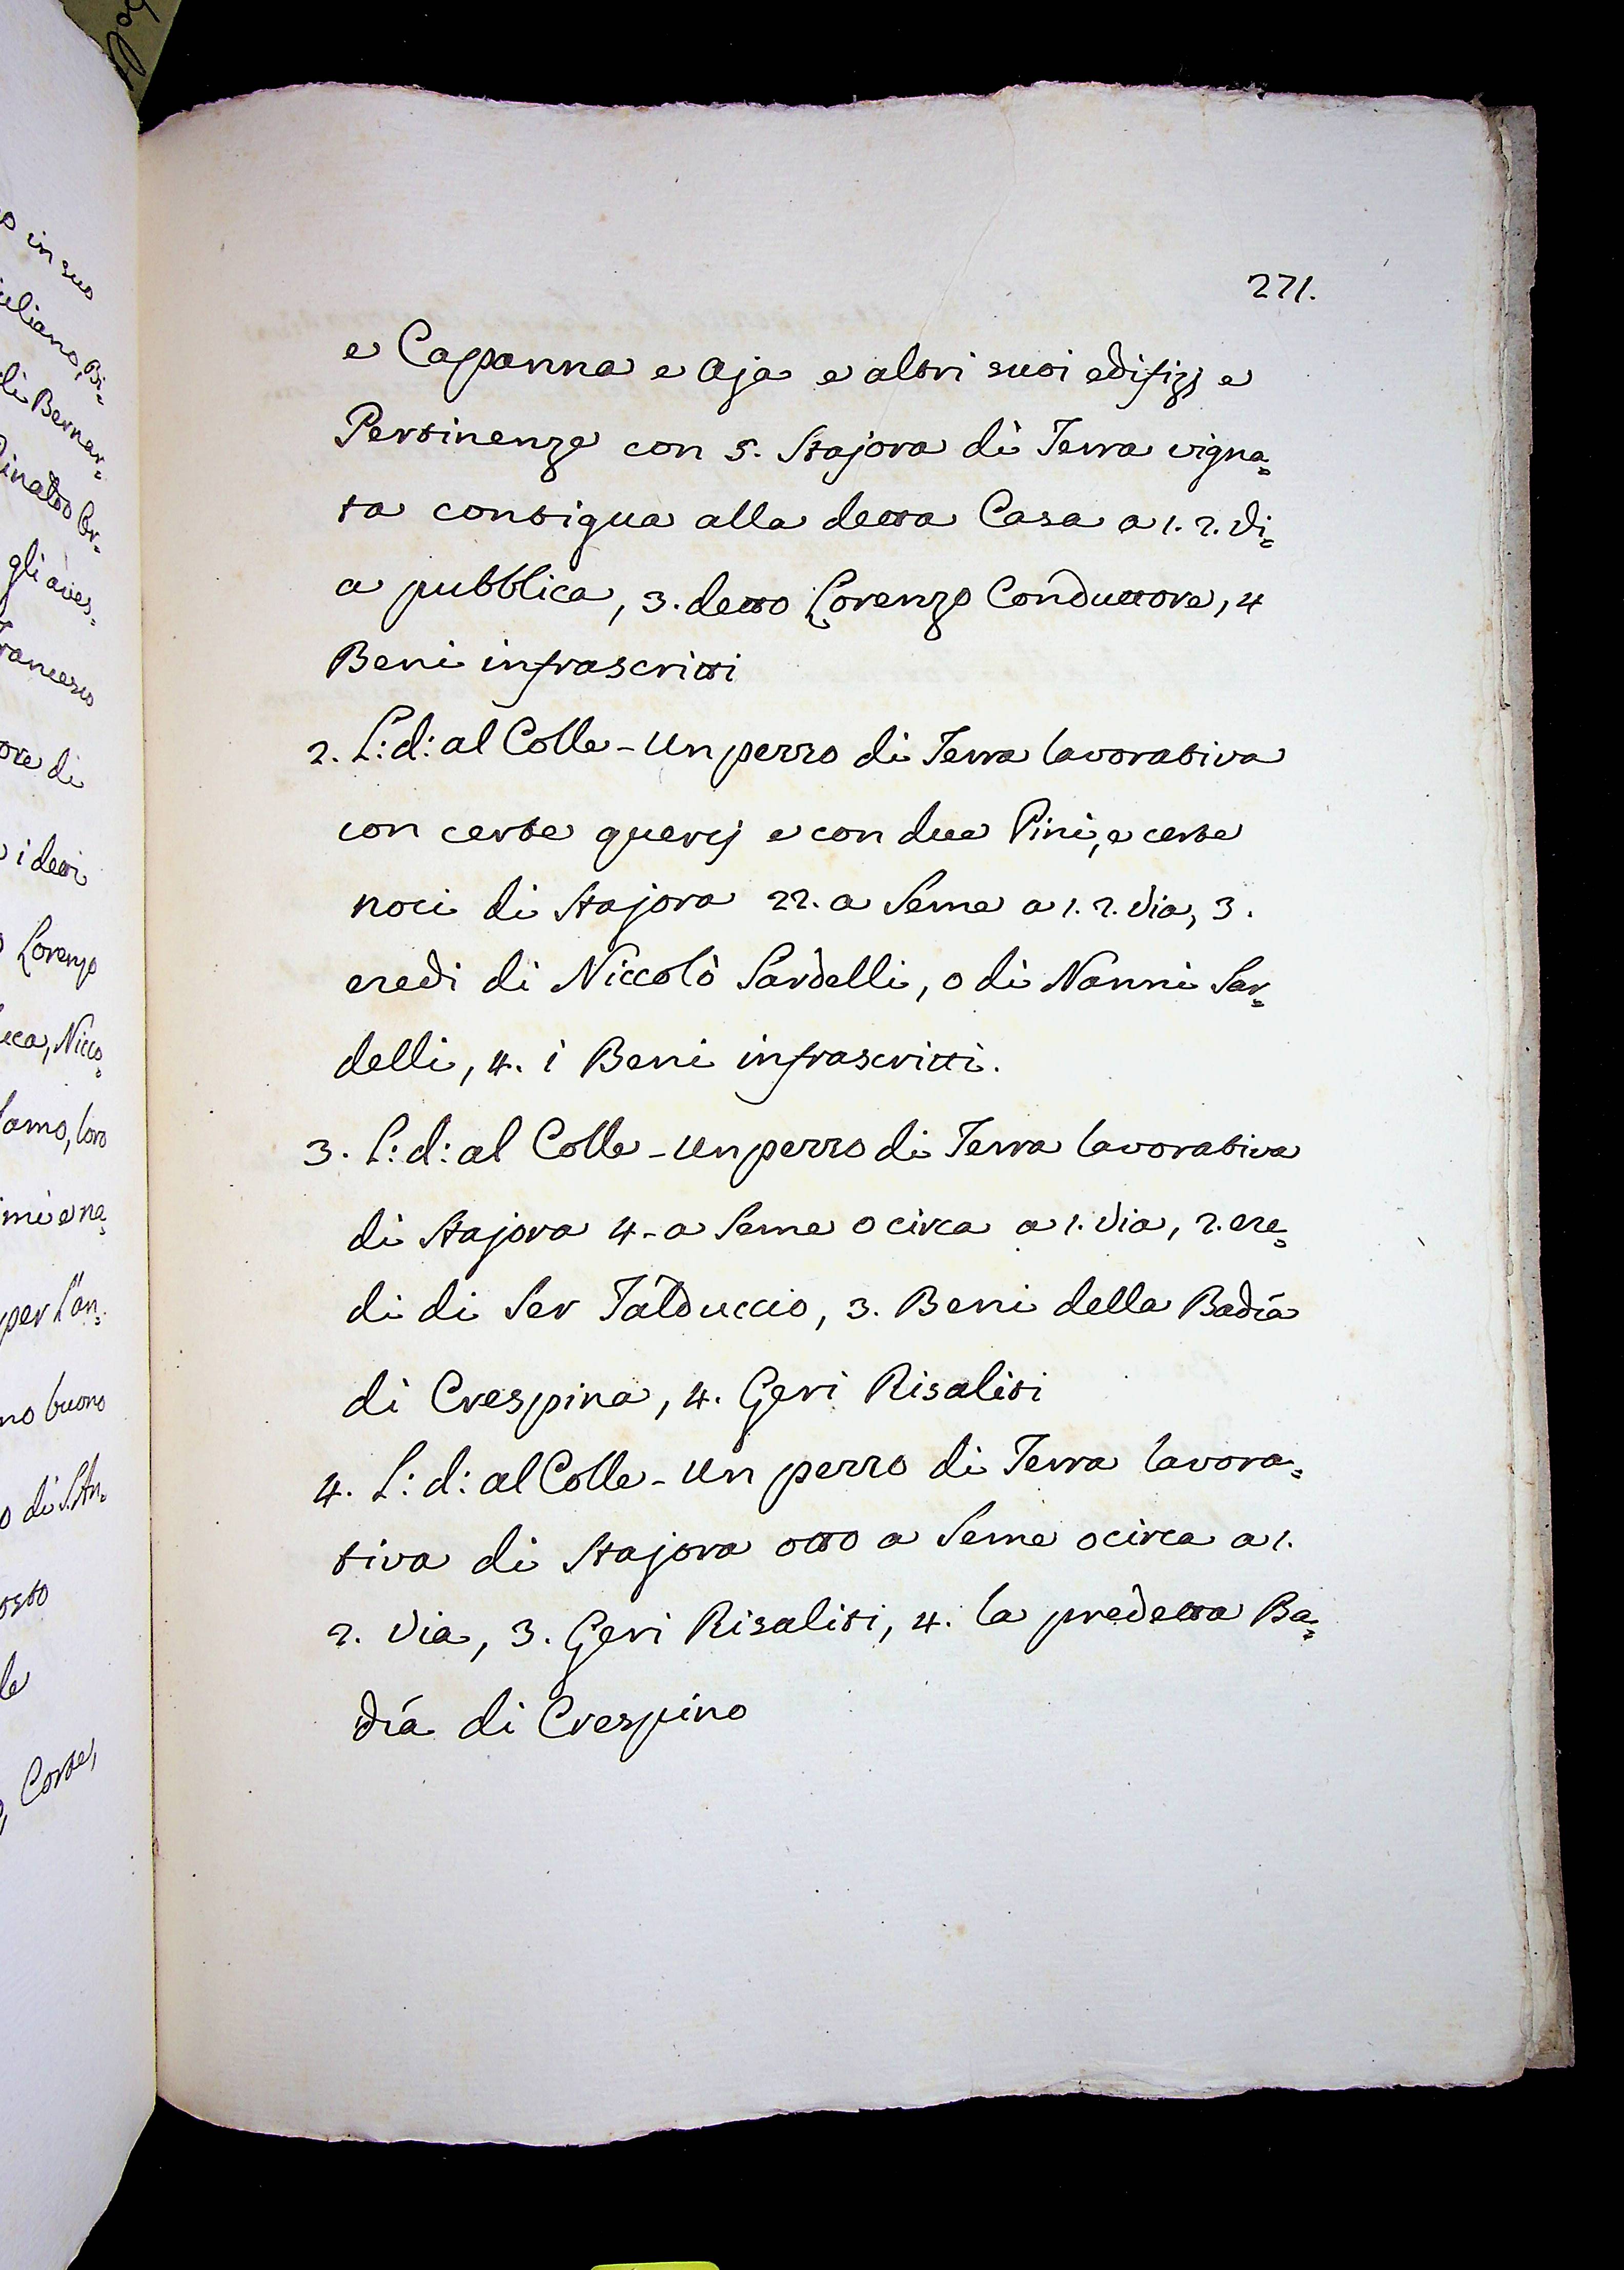 271.
e Capanna e Aja e altri suoi edifizj e
Pertinenze con 5. Stajora di Terra vigna=
ta contigua alla detta Casa a 1. 2. Vi=
a pubblica, 3. detto Lorenzo Conduttore, 4
Beni infrascritti
2. L: d: al Colle - Un pezzo di Terra lavorativa
con certe quercj e con due Pini, e certe
noci di Stajora 22. a Seme a 1. 2. Via, 3.
eredi di Niccolò Sardelli, o di Nanni Sar=
delli, 4. i Beni infrascritti.
3. L: d: al Colle - Un pezzo di Terra lavorativa
di Stajora 4 - a Seme o circa a 1. Via, 2. ere=
di di Ser Talduccio, 3. Beni della Badía
di Crespina, 4. Geri Risaliti
4. L: d: al Colle - Un pezzo di Terra lavora=
tiva di Stajora otto a Seme o circa a 1.
2. Via, 3. Geri Risaliti, 4. la predetta Ba=
día di Crespino
in suo
Bernar=
gli aves=
i detti
Lorenzo
Nicco=
loro
per l'an=
buono
di S. An=
Corte,